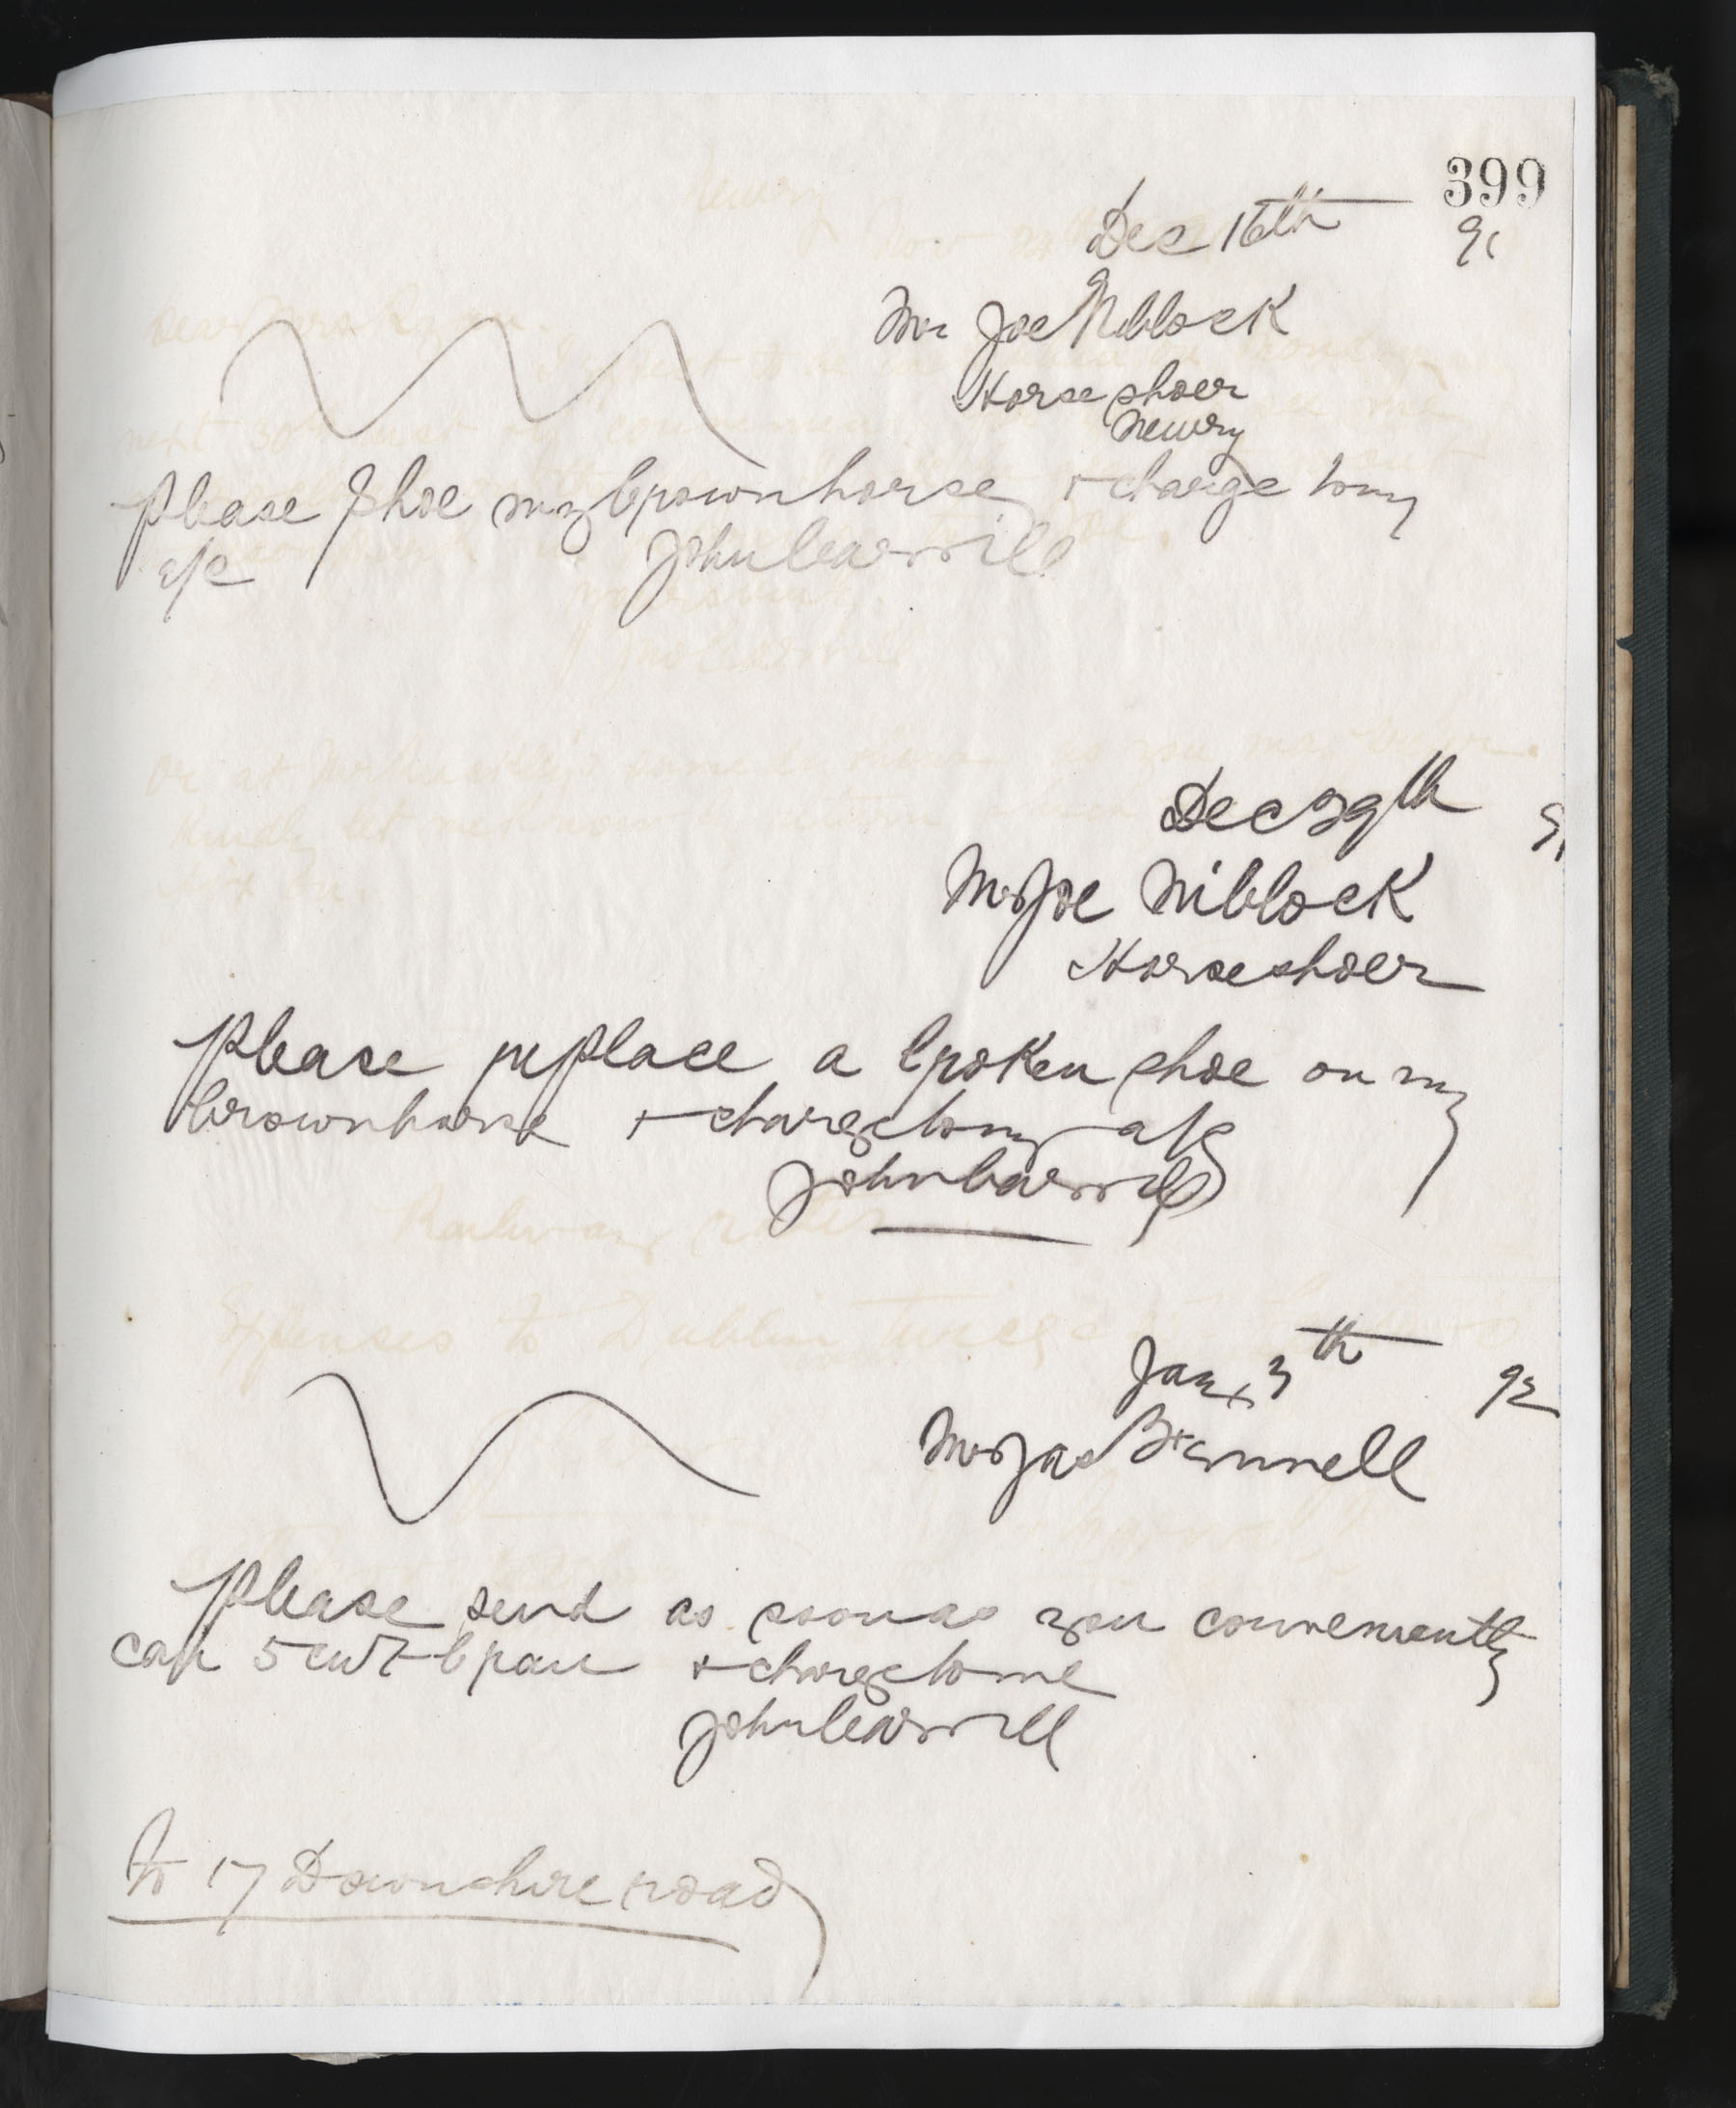 399
Dec 16th 91
Mr Joe Niblock
Horse shoer
Newry
Please Shoe my brown horse + charge to my
a/c John Carvill
Dec 29th 91
Mr Joe Niblock
Horse shoer
Please replace a broken shoe on my
brown horse + charge to my a/c
John Carvill
Jany 3th 92
Mr Jas
Please send as soon as you conveniently
can 5 cwt bran + charge to me
John Carvill
to 17 Downshire road